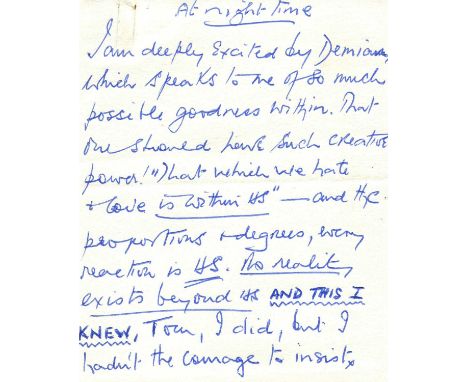 At night time
I am deeply excited by Demian,
which speaks to me of so much
possible goodness within. That
one should have such creative
power! "That which we hate
& love is within US" — and the
proportions & degrees, every
reaction is US. No reality
exists beyond US AND THIS I
KNEW, Tom, I did, but I
hadn't the courage to insist,